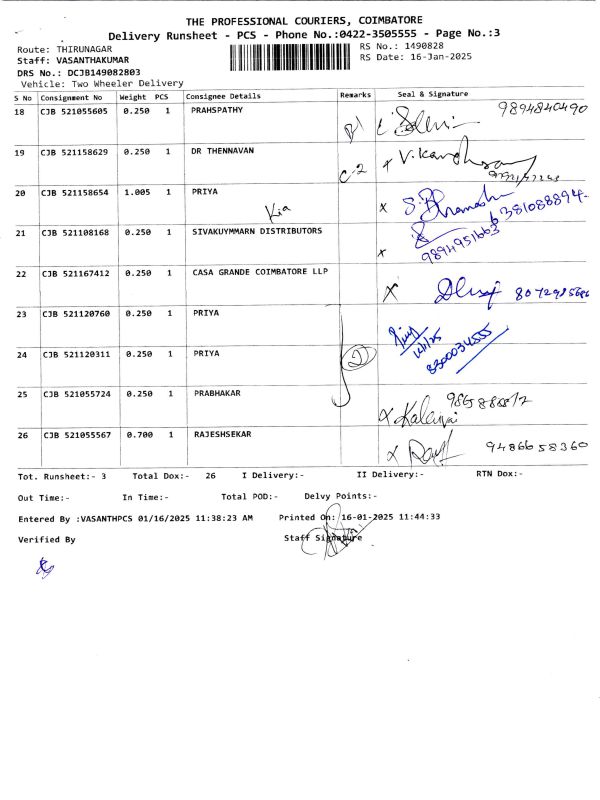 THE PROFESSIONAL COURIERS, COIMBATORE
Delivery Runsheet - PCS - Phone No.:0422-3505555 - Page No.:3
Route: THIRUNAGAR
RS No.: 1490828
Staff: VASANTHAKUMAR
RS Date: 16-Jan-2025
DRS No.: DCJB149082803
Vehicle: Two Wheeler Delivery
S No Consignment No Weight PCS Consignee Details Remarks Seal & Signature
18 CJB 521055605 0.250 1 PRAHSPATHY 9894840490
19 CJB 521158629 0.250 1 DR THENNAVAN C2 x
20 CJB 521158654 1.005 1 PRIYA x
Kia
6381088894
21 CJB 521108168 0.250 1 SIVAKUYMMARN DISTRIBUTORS x
9894951663
22 CJB 521167412 0.250 1 CASA GRANDE COIMBATORE LLP X
23 CJB 521120760 0.250 1 PRIYA
24 CJB 521120311 0.250 1 PRIYA 2
8300034555
25 CJB 521055724 0.250 1 PRABHAKAR
x Kalaivai
26 CJB 521055567 0.700 1 RAJESHSEKAR x 9486658360
Tot. Runsheet:- 3 Total Dox:- 26 I Delivery:- II Delivery:- RTN Dox:-
Out Time:- In Time:- Total POD:- Delvy Points:-
Entered By :VASANTHPCS 01/16/2025 11:38:23 AM Printed On: 16-01-2025 11:44:33
Verified By Staff Signature